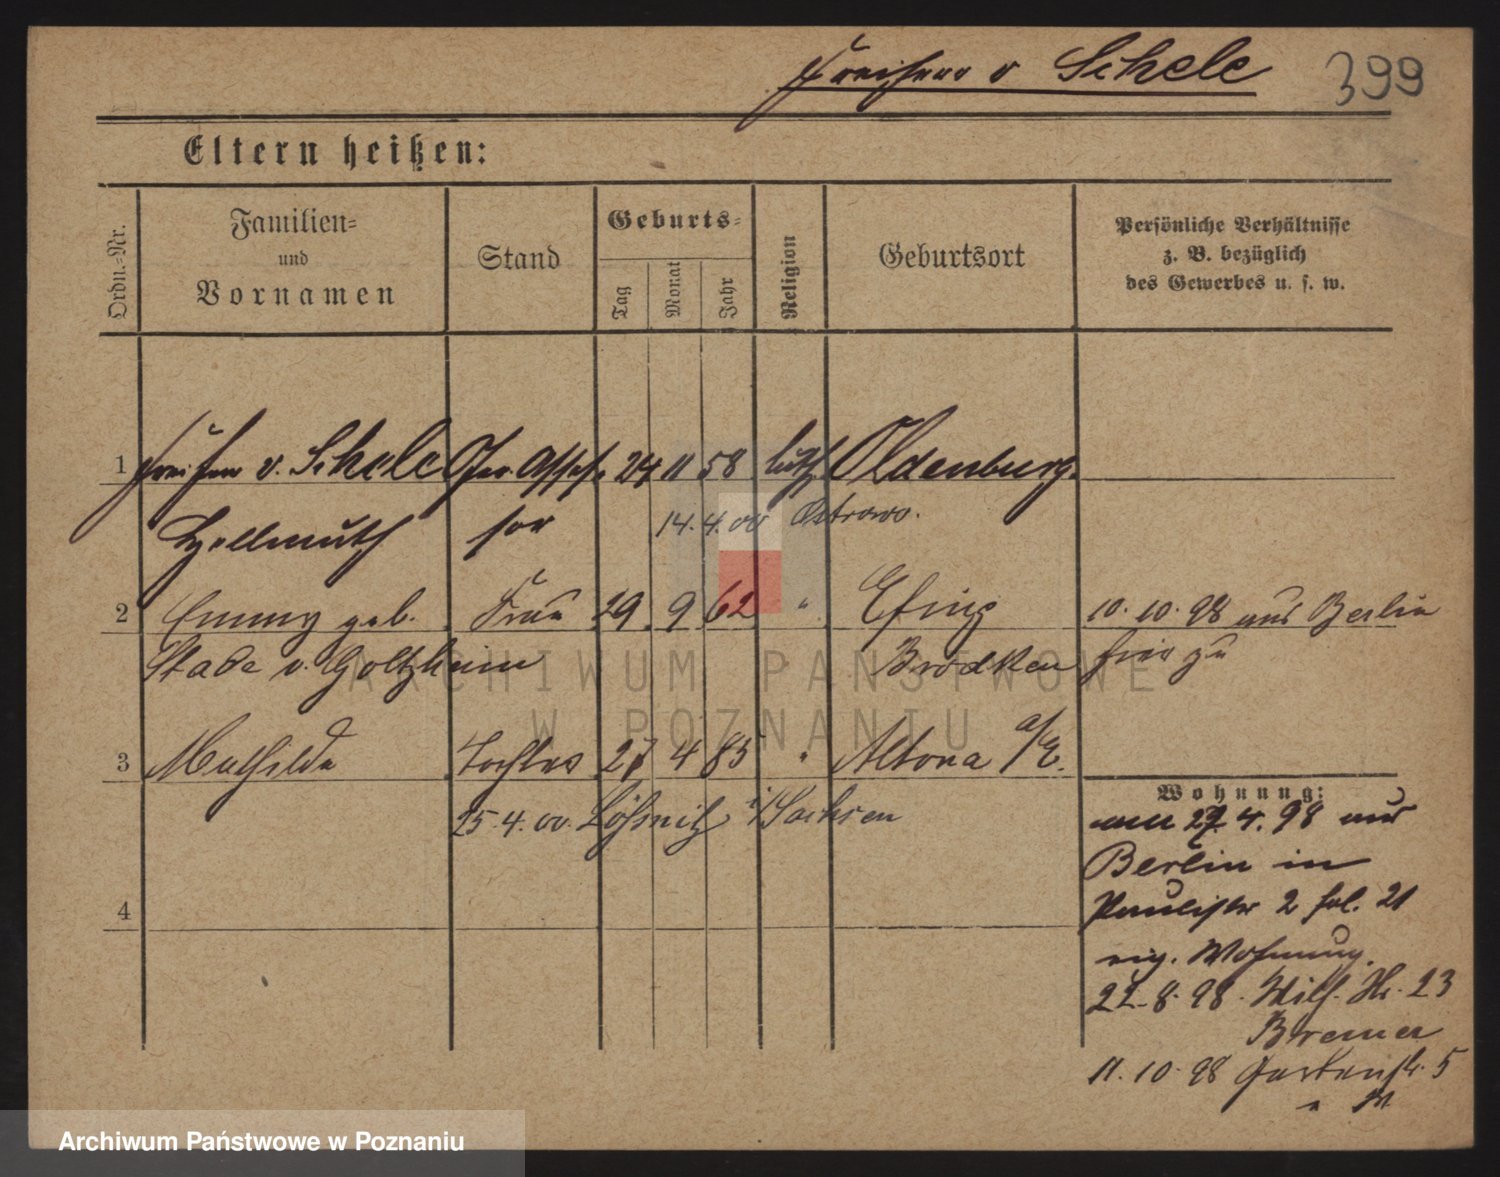 Freiherr v Schele 399
Eltern heißen:
Ordn.-Nr.
Familien-
und
Vornamen
Stand
Geburts-
Tag
Monat
Jahr
Religion
Geburtsort
Persönliche Verhältnisse
z. B. bezüglich
des Gewerbes u. s. w.
1 Freiherr v. Schele Ger. Asses- 24 11 58 luth. Oldenburg.
Hellmuth sor 14.4.00 Ostrowo.
2 Emmy geb. Frau 29 9 62 " 10. 10. 98 aus Berlin
Stade v. Goltzheim hier zu
3 Mathilde Tochter 27 4 85 " Altona a/E.
25.4.00. Lößnitz i/Sachsen
Wohnung:
am 27. 4. 98 aus
Berlin in
Paulistr 2 bei
eig. Wohnung.
22.8.98. Wilh. Str. 23
Bremer
11. 10. 98 Gartenstr. 5
4
ARCHIWUM PAŃSTWOWE
W POZNANIU
Archiwum Państwowe w Poznaniu